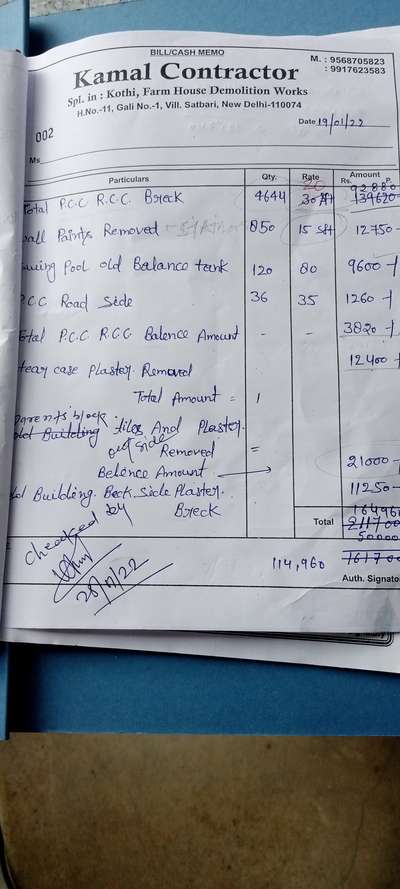 BILL/CASH MEMO
M. : 9568705823
: 9917623583
Kamal Contractor
Spl. in : Kothi, Farm House Demolition Works
H.No.-11, Gali No.-1, Vill. Satbari, New Delhi-110074
002
Date 19/01/22
Ms
Particulars Qty. Rate Amount
Rs. P.
20 92880
Total P.C.C R.C.C. Breck 4644 30 139620
all Paints Removed 850 15 sft 12750-
Pool old Balance tank 120 80 9600-/
C.C Road Side 36 35 1260-/
otal P.C.C R.C.C Balence Amount - - 3820-/
case Plaster. Removed 12400-/
Total Amount =
block
old Building tiles And Plaster.
out side Removed =
Belence Amount → 21000-/
ld Building. Beck side Plaster. 11250-
Breck
164960
Total 211700
50000
checked by
114,960 161700
28/01/22
Auth. Signato